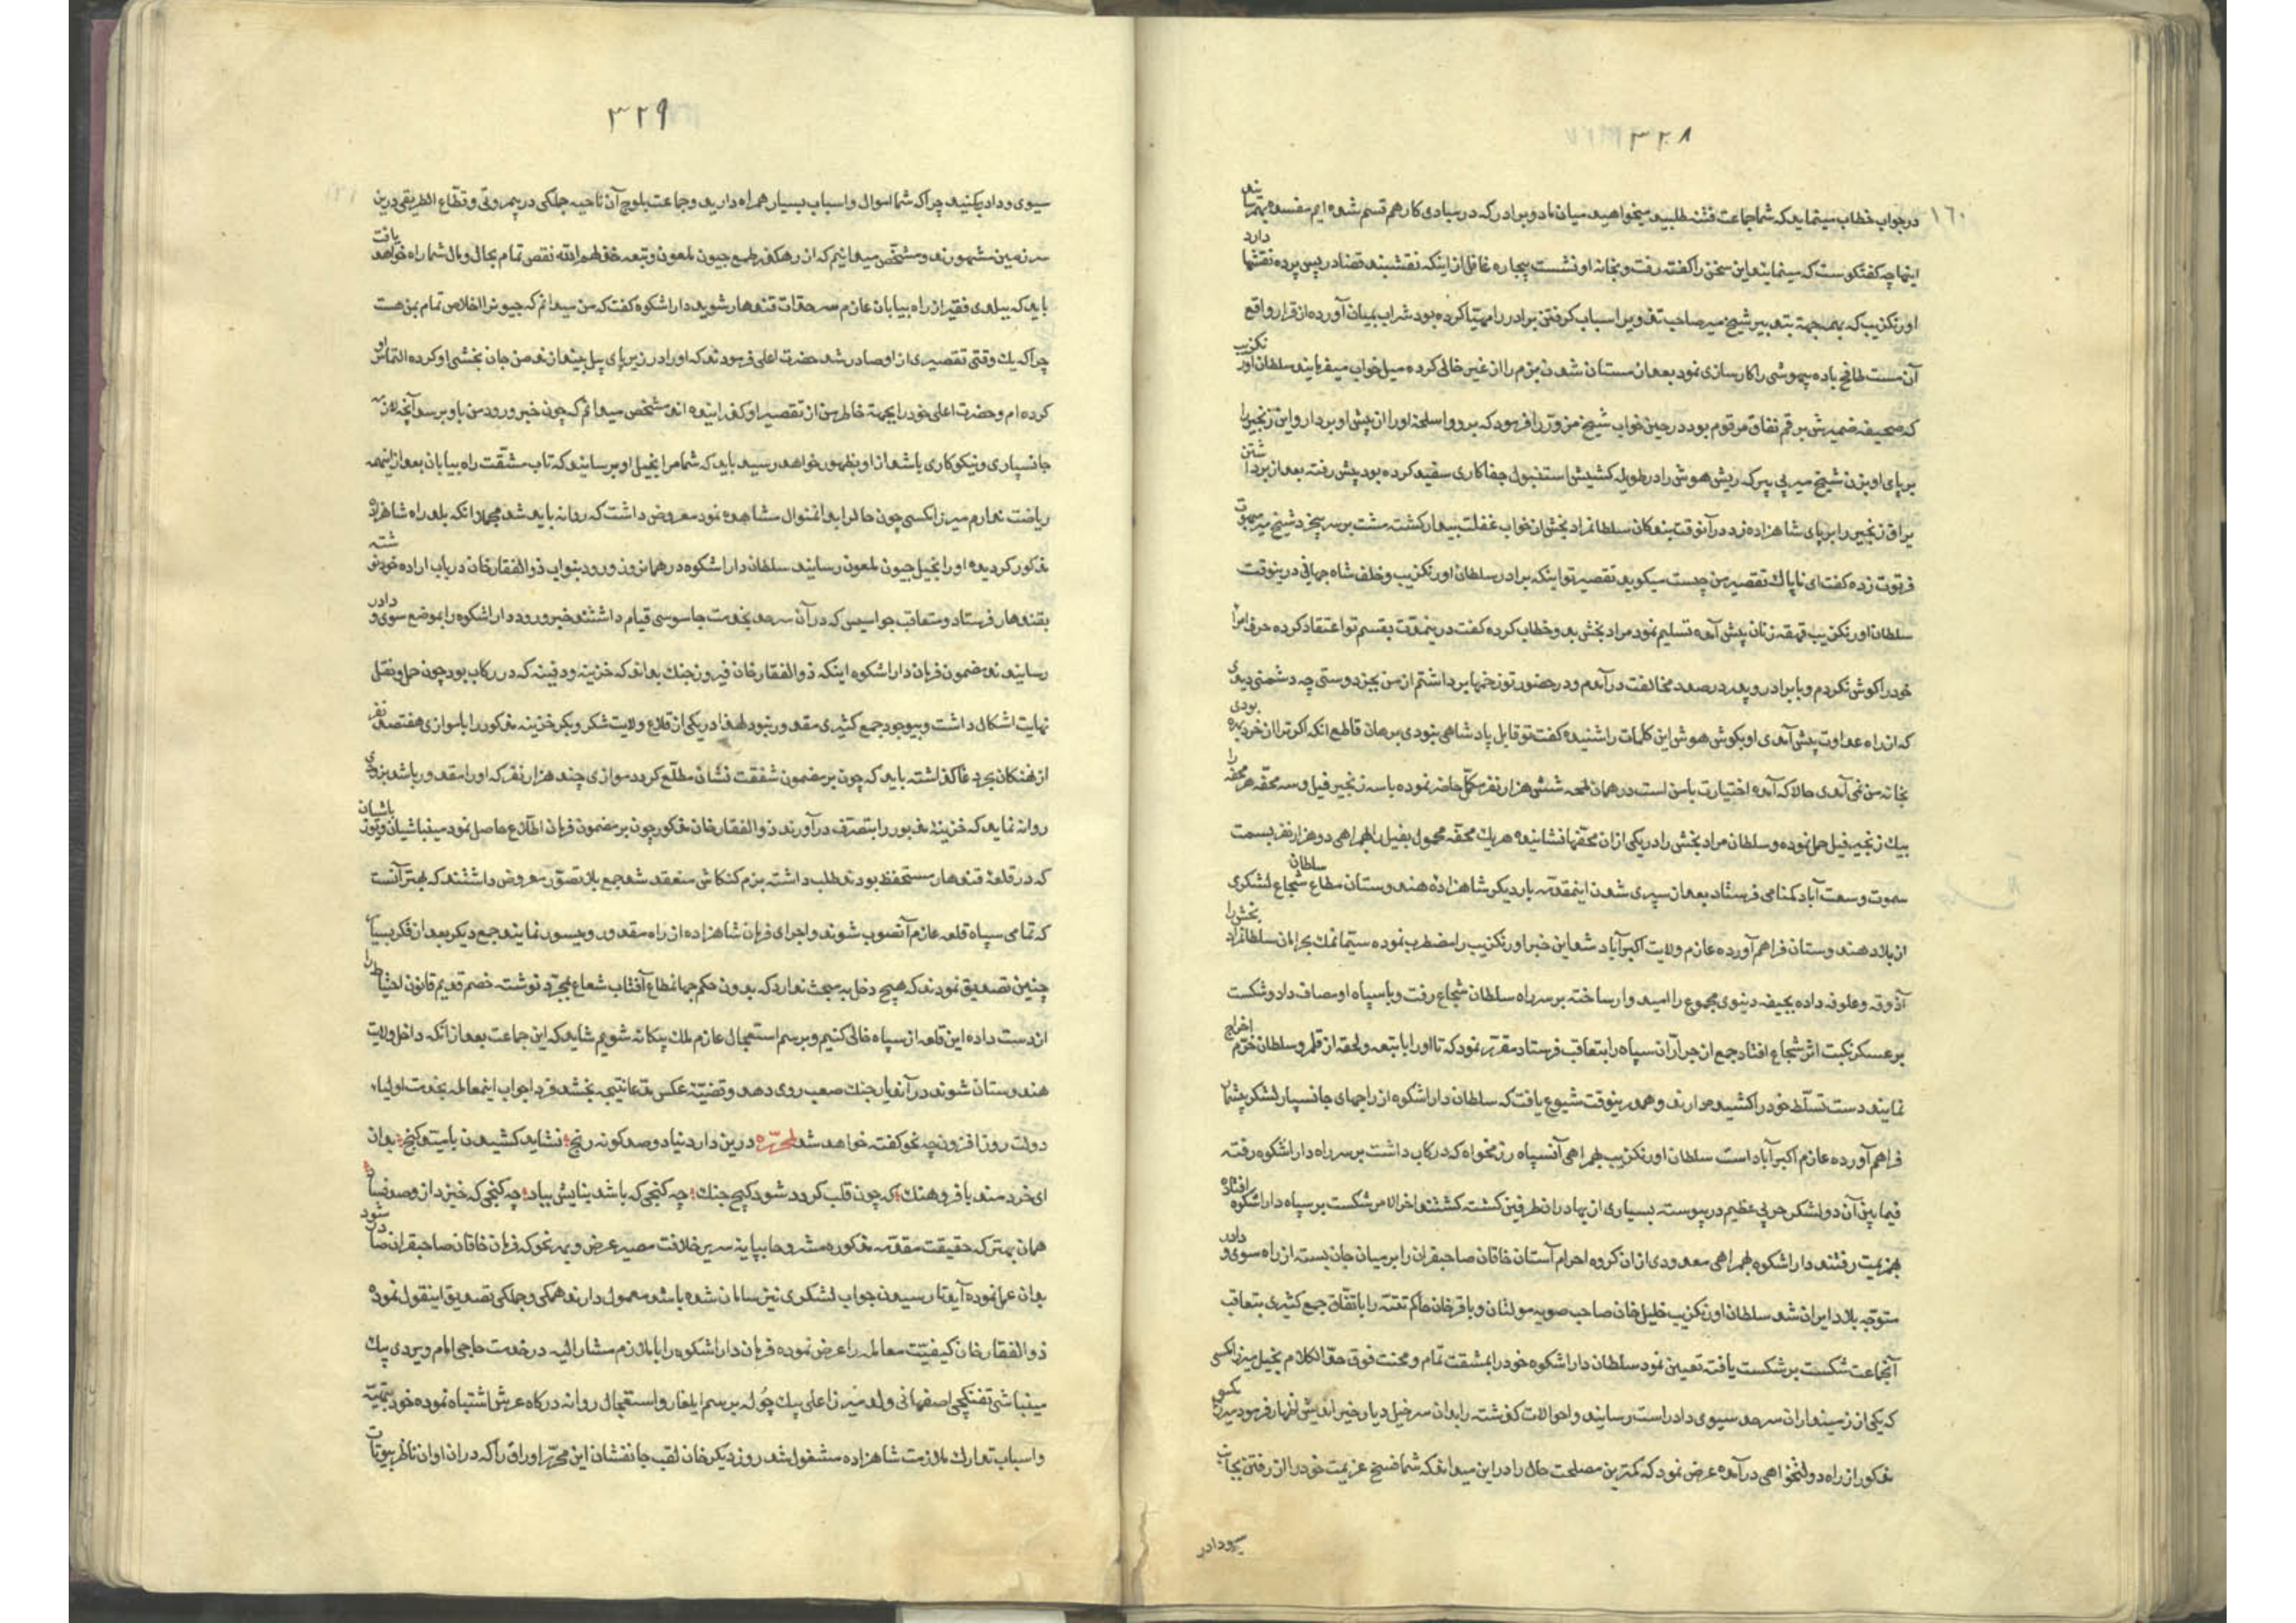 ۳۲۸
۱۶۰
در جواب خطاب مینماید که شما جماعت فتنه طلبید میخواهید میان ما دو برادر که در مبادی کار هم قسم شده ایم مفسده بهتر
اینها چه کفتکوست که مینمایند این سخن را کفته رفت و بخانه او نشست بیچاره غافل از اینکه نقشبند قضا در پس پرده نقشها دارد
اورنکزیب که بهمه جهة بتدبیر شیخ میر صاحب تدویر اسباب کرفتن برادر را مهیّا کرده بود شراب بمیان آورده از قرار واقع
آن مست طافح باده بیهوشی را کارسازی نمود بعد از مستان شدن بزم را از غیر خالی کرده میل خواب میفرمایند سلطان اورنکزیب
که صحیفه ضمیرش برقم نفاق مرقوم بود در حین خواب شیخ مزوّر را فرمود که برو و اسلحهٔ او را از پیش او بردار و این زنجیر را
بر پای او بزن شیخ میر بی پیر که ریش هوش را در طویله کشیش استنبول جفاکاری سفید کرده بود پیش رفته بعد از برداشتن
یراق زنجیر را بر پای شاهزاده زد در آنوقت بندکان سلطان مراد بخش از خواب غفلت بیدار کشته مشت بر سر پیخرد شیخ میر مبهوت
فرتوت زده کفت ای ناپاک تقصیر من چیست میکوید تقصیر تو اینکه برادر سلطان اورنکزیب و خلف شاه جهانی درینوقت
سلطان اورنکزیب قهقه زنان پیش آمده تسلیم نمود مراد بخش بدو خطاب کرده کفت درینمدّت بقسم تو اعتقاد کرده حرف امرا
خود را کوش نکردم و با برادر و پدر در صدد مخالفت درآمدم و در حضور تو زخمها برداشتم از من بجز دوستی چه دشمنی دیدی
که از راه عداوت پیش آمدی او بکوش هوش این کلمات را شنیده کفت تو قابل پادشاهی نبودی برهان قاطع آنکه اکر ترا از خرد بهره بودی
بخانه من نمی آمدی حالا که آمده اختیارت با من است در همان لحمه ششهزار نفر مکمّل حاضر نموده با سه زنجیر فیل و سه محفّه هر محفّه را
بیک زنجیر فیل حمل نموده و سلطان مراد بخش را در یکی از ان محفّها نشانیده هر یک محفّه محمول بفیل را بهمراهی دو هزار نفر بسمت
سموت وسعت آباد کمنامی فرستاد بعد از سپری شدن اینمقدّمه بار دیکر شاهزاده هندوستان مطاع سلطان شجاع لشکری
از بلاد هندوستان فراهم آورده عازم ولایت اکبرآباد شد این خبر اورنکزیب را مضطرب نموده سیّما نمک بحرامان سلطان مراد بخش را
آذوقه و علوفه داده بجیفه دنیوی مجموع را امیدوار ساخته بر سر راه سلطان شجاع رفت و با سپاه او مصاف داد و شکست
بر عسکر نکبت اثر شجاع افتاد جمع از جرّاران سپاه را بتعاقب فرستاد مقرّر نمود که تا او را با بتعه و لحقه از قلمرو سلطان خرّم اخراج
نمایند دست تسلّط خود را کشیده مدارند و هم درینوقت شیوع یافت که سلطان داراشکوه از راجهای جانسپار لشکر بیشمار
فراهم آورده عازم اکبرآباد است سلطان اورنکزیب بهمراهی آنسپاه رزمخواه که در رکاب داشت بر سر راه داراشکوه رفته
فیمابین آن دو لشکر حربی عظیم درپیوسته بسیاری از بهادران طرفین کشته کشتند اخرالامر شکست بر سپاه داراشکوه افتاده
بهزیمت رفتند داراشکوه بهمراهی معدودی از ان کروه احرام آستان خاقان صاحبقران را بر میان جان بسته از راه سوی و دادر
متوجّه بلاد ایران شد سلطان اورنکزیب خلیل خان صاحب صوبه مولتان و باقر خان حاکم تته را باتّفاق جمع کثیری بتعاقب
آنجماعت شکست بر شکست یافته تعیین نمود سلطان داراشکوه خود را بمشقّت تمام و محنت فوق حدّ الکلام بخیل میرزا مکسی
که یکی از زمینداران سرحد سیوی دادر است رسانید و احوالات کذشته را بدان سرخیل دیار خیر اندیش اظهار فرمود میرزا مکسی
مذکور از راه دولتخواهی درآمده عرض نمود که کمترین مصلحت حال را در این میداند که شما فسخ عزیمت خود را از رفتن بجانب
سیو و دادر
۳۲۹
سیوی و دادر بکنید چرا که شما اموال و اسباب بسیار همراه دارید و جماعت بلوچ آن ناحیه جملکی در بیمروّتی و قطّاع الطریقی درین
سرزمین مشهورند و مشخّص میدانیم که از رهکذر طمع جیون ملعون و تبعه خذلهم الله نقص تمام بحال و مال شما راه خواهد یافت
باید که ببلدی فقیر از راه بیابان عازم سرحدّات قندهار شوید داراشکوه کفت که من میدانم که جیون را اخلاص تمام بمن هست
چرا که یک وقتی تقصیری از او صادر شد حضرت اعلی فرمودند که او را در زیر پای پیل بیندازند من جان بخشی او کرده التماس او
کرده ام و حضرت اعلی خود را بجهة خاطر من از تقصیر او کذرانیده اند مشخص میدانم که چون خبر ورود من باو برسد آنچه لازمه
جانسپاری و نیکوکاری باشد از او بظهور خواهد رسید باید که شما مرا بخیل او برسانید که تاب مشقّت راه بیابان بعد از اینهمه
ریاضت ندارم میرزا مکسی چون حال را بدینمنوال مشاهده نمود معروض داشت که روانه باید شد مجملا آنکه بلد راه شاهزاده
مذکور کردیده او را بخیل جیون ملعون رسانید سلطان داراشکوه در همان روز ورود بنواب ذوالفقار خان در باب اراده خود نوشته
بقندهار فرستاد و متعاقب جواسیس که در آن سرحد بخدمت جاسوسی قیام داشتند خبر ورود داراشکوه را بموضع سوی و دادر
رسانیدند مضمون فرمان داراشکوه اینکه ذوالفقار خان فیروز جنک بداند که خزینه و دفینه که در رکاب بود چون حمل و نقل
نهایت اشکال داشت و بیوجود جمع کثیری مقدور نبود لهذا در یکی از قلاع ولایت شکر و بکر خزینه مذکور را با موازی هفتصد نفر
از نهنکان بحر دغا کذاشته باید که چون بر مضمون شفقت نشان مطّلع کردد موازی چند هزار نفر که او را مقدور باشد بزودی
روانه نماید که خزینهٔ مزبور را بتصرّف درآورند ذوالفقار خان مذکور چون بر مضمون فرمان اطّلاع حاصل نمود مینباشیان و یوزباشیان
که در قلعهٔ قندهار مستحفظ بودند طلب داشته بزم کنکاش منعقد شد جمع بلا تصوّر معروض داشتند که بهتر آنست
که تمامی سپاه قلعه عازم آنصوب شوند و اجرای فرمان شاهزاده از راه مقدور و میسور نمایند جمع دیکر بعد از فکر بسیار
چنین تصدیق نمودند که هیچ دخل بمبحث ندارد که بدون حکم جهانمطاع آفتاب شعاع بمجرّد نوشته خصم قدیم قانون احتیاط را
از دست داده این قلعه از سپاه خالی کنیم و برسم استعجال عازم ملک بیکانه شویم شاید که این جماعت بعد از آنکه داخل ولایت
هندوستان شوند در آندیار جنک صعب روی دهد و قضیّه عکس مدّعا نتیجه بخشد فردا جواب اینمعامله بخدمت اولیاء
دولت روزافزون چه نحو کفته خواهد شد لمحرّره درین دار دنیا دو صد کونه رنج نشاید کشیدن بامید کنج بدان
ای خردمند با فرّ و هنک که چون قلب کردد شود کنج جنک چه کنجی که باشد بنایش بباد چه کنجی که خیزد از و صد فساد
همان بهتر که حقیقت مقدّمه مذکوره مشروحا بپایه سریر خلافت مصیر عرض و بهر نحو که فرمان خاقان صاحبقران صادر شود
بدان عمل نموده آید تا رسیدن جواب لشکری نیز سامان شده باشد معمول دارند همکی و جملکی تصدیق اینقول نموده
ذوالفقار خان کیفیّت معامله را عرض نموده فرمان داراشکوه را با ملازم مشارالیه در خدمت حاجی امام ویردی بیک
مینباشی تفنکچی اصفهانی ولد میرزا علی بیک چُوله برسم ایلغار و استعجال روانه درکاه عرش اشتباه نموده خود بتهیّه
و اسباب تدارک ملازمت شاهزاده مشغول شد روز دیکر خان لقب جانفشان این محرّر اوراق را که در ان اوان ناظر بیوتات